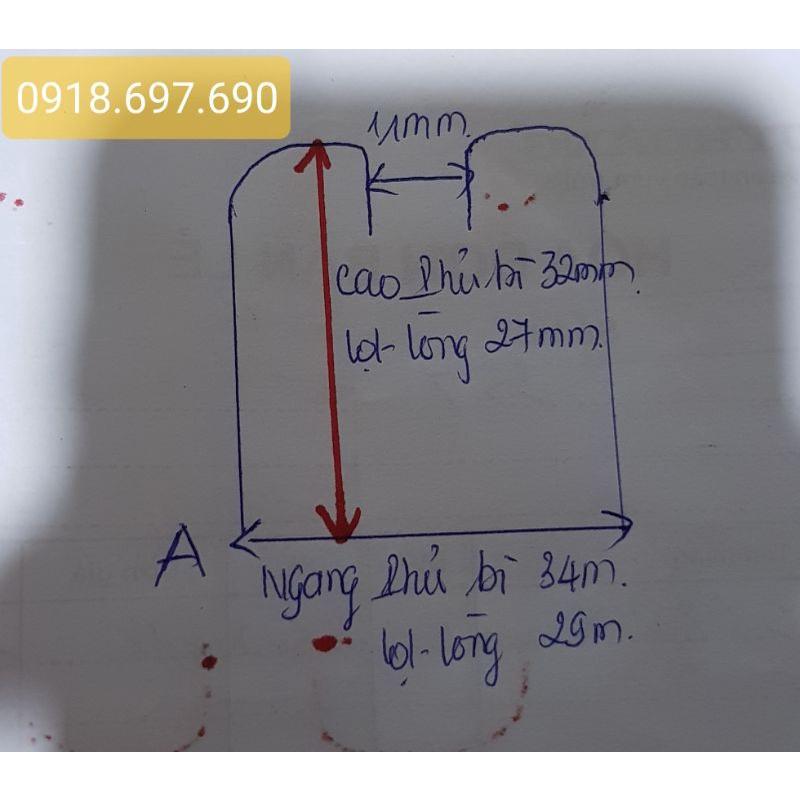 0918.697.690
11mm.
cao phủ bì 32mm.
lọt lòng 27mm.
A
Ngang phủ bì 34m.
lọt lòng 29m.